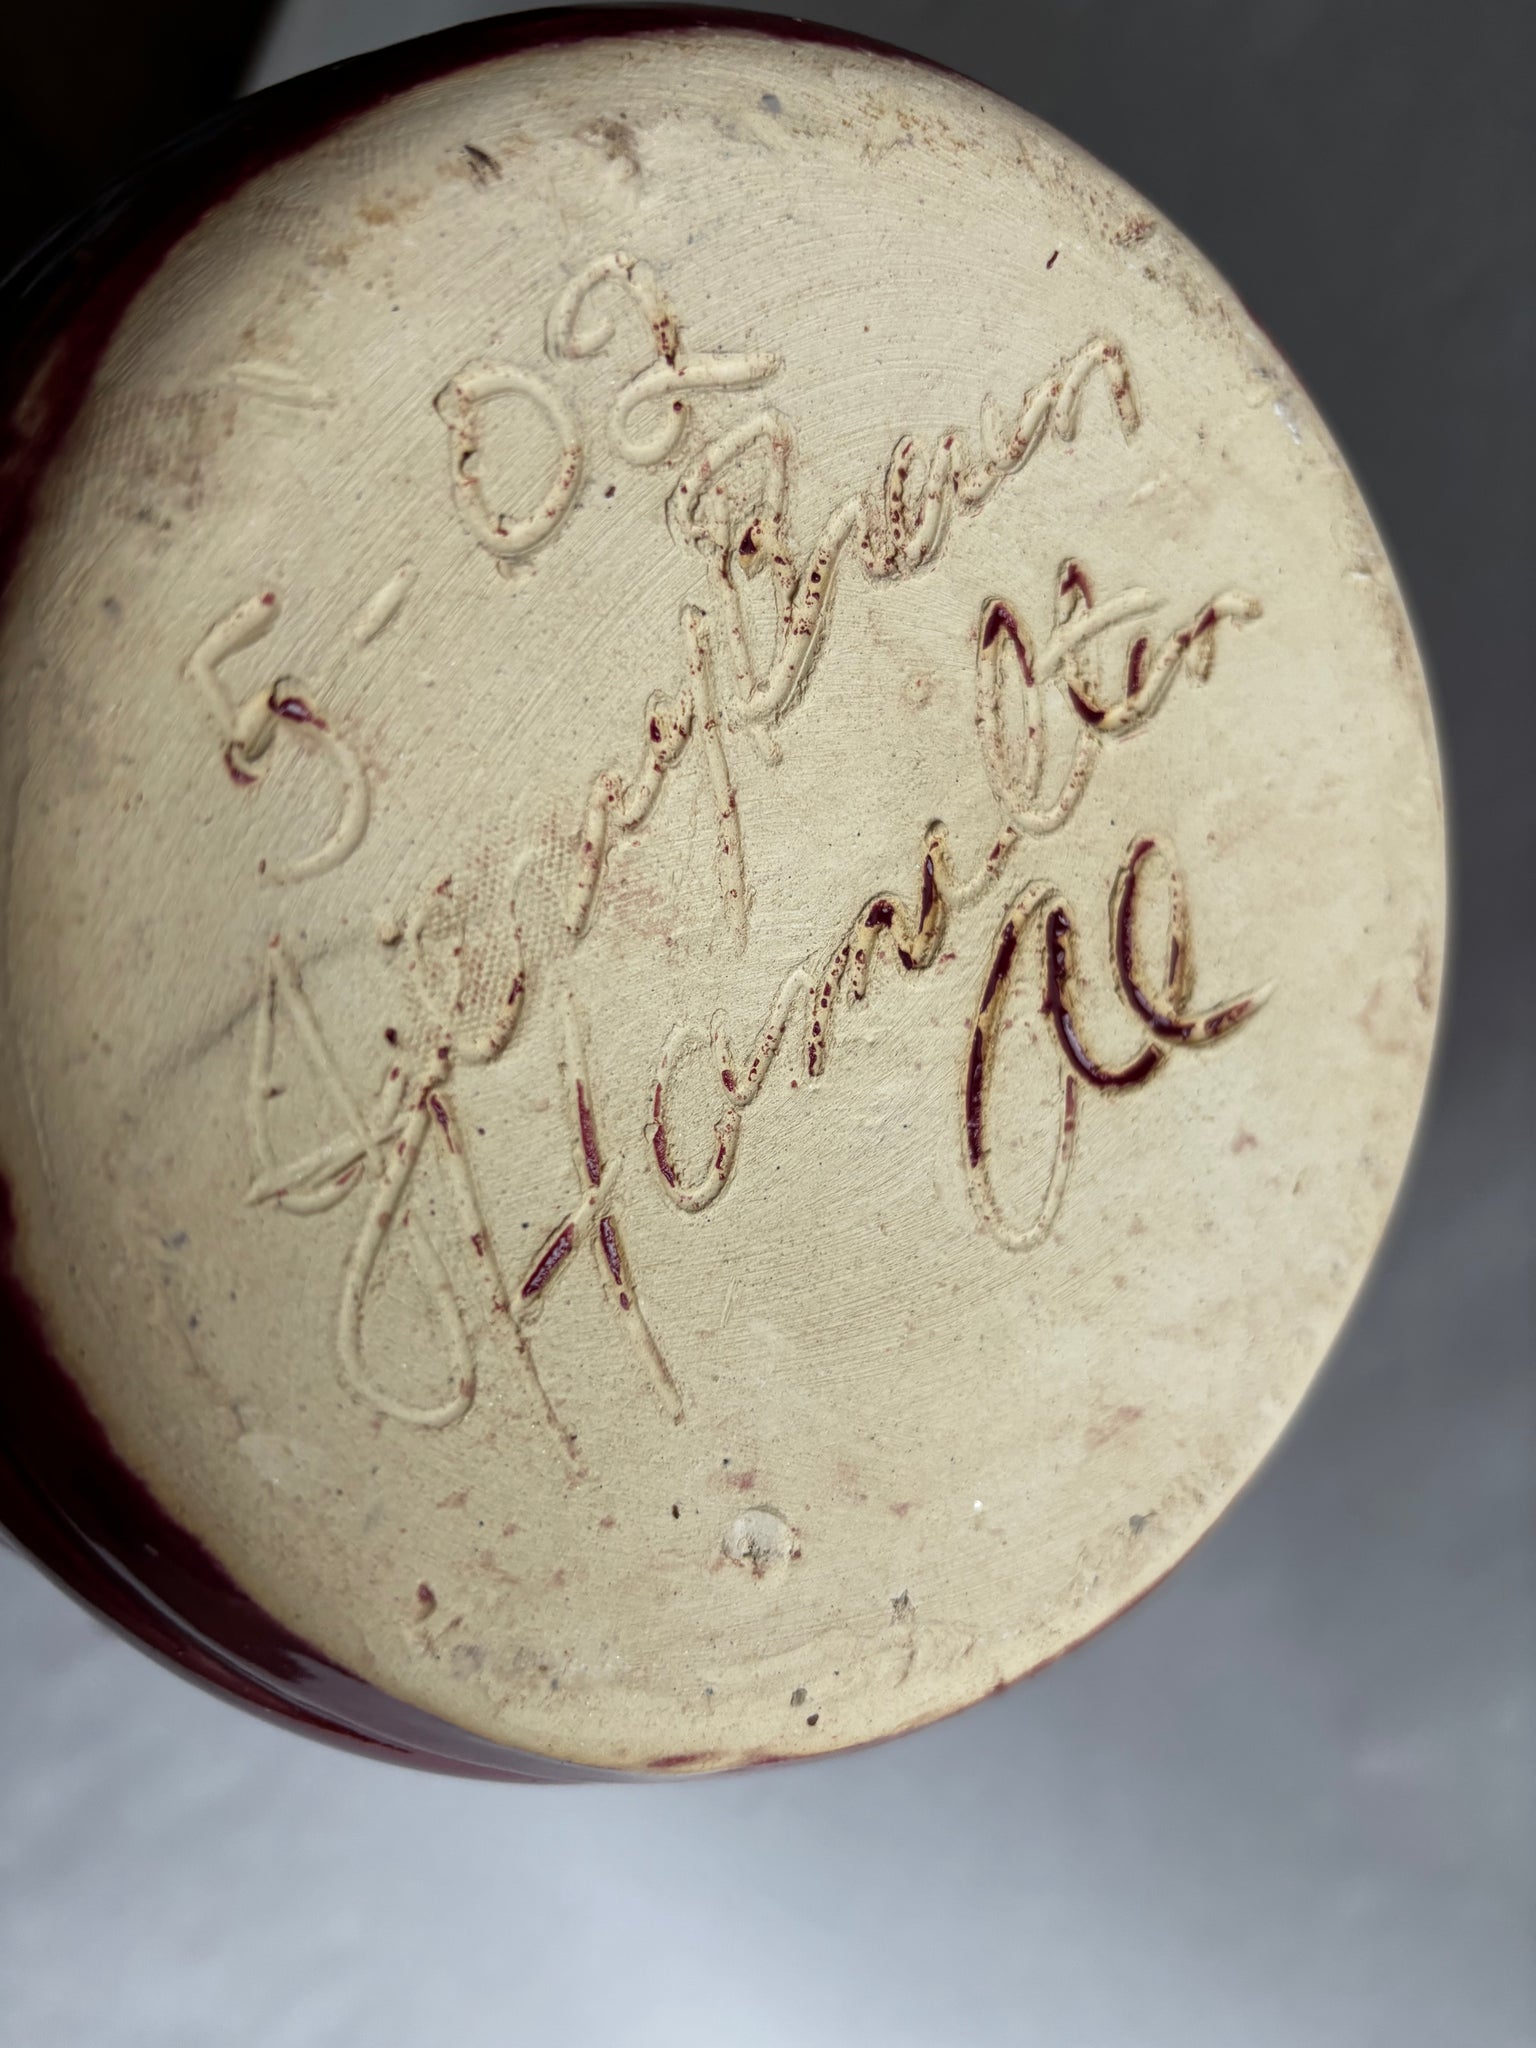 5-02
Jerry Brown
Hamilton
Al